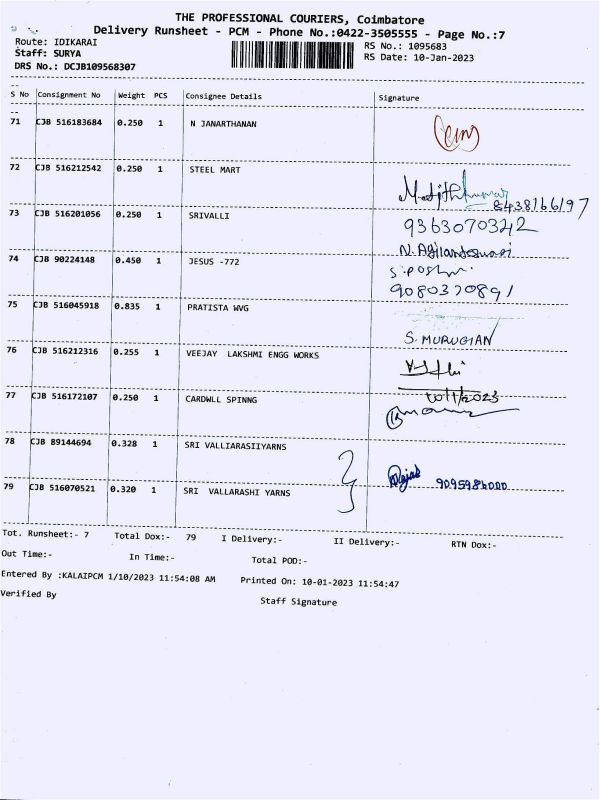 THE PROFESSIONAL COURIERS, Coimbatore
Delivery Runsheet - PCM - Phone No.:0422-3505555 - Page No.:7
Route: IDIKARAI
RS No.: 1095683
Staff: SURYA
RS Date: 10-Jan-2023
DRS No.: DCJB109568307
S No Consignment No Weight PCS Consignee Details Signature
71 CJB 516183684 0.250 1 N JANARTHANAN
72 CJB 516212542 0.250 1 STEEL MART
8438166197
73 CJB 516201056 0.250 1 SRIVALLI 9363070342
74 CJB 90224148 0.450 1 JESUS -772
9080370891
75 CJB 516045918 0.835 1 PRATISTA WVG
S. MURUGIAN
76 CJB 516212316 0.255 1 VEEJAY LAKSHMI ENGG WORKS
10/1/2023
77 CJB 516172107 0.250 1 CARDWLL SPINNG
78 CJB 89144694 0.328 1 SRI VALLIARASIIYARNS
79 CJB 516070521 0.320 1 SRI VALLARASHI YARNS
Tot. Runsheet:- 7 Total Dox:- 79 I Delivery:- II Delivery:- RTN Dox:-
Out Time:- In Time:- Total POD:-
Entered By :KALAIPCM 1/10/2023 11:54:08 AM Printed On: 10-01-2023 11:54:47
Verified By Staff Signature